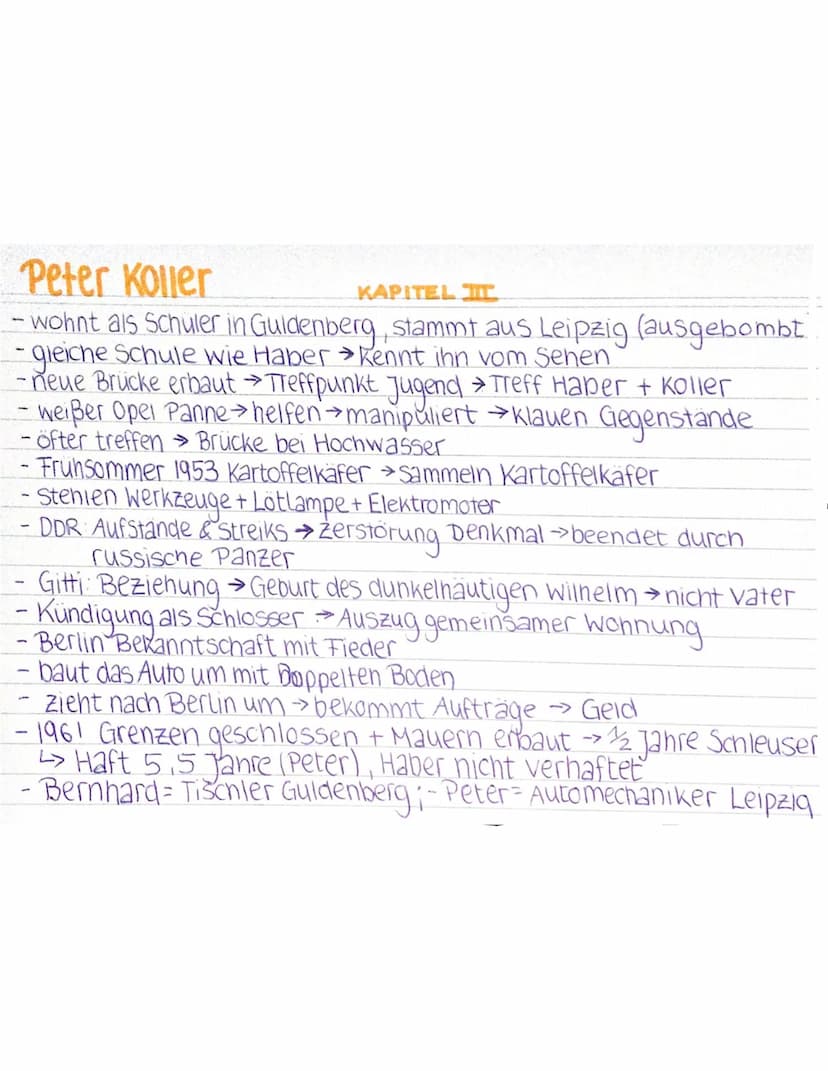 Peter Koller
KAPITEL III
- wohnt als Schüler in Guldenberg, stammt aus Leipzig (ausgebombt
- gleiche Schule wie Haber → kennt ihn vom Sehen
- neue Brücke erbaut → Treffpunkt Jugend → Treff Haber + Koller
- weißer Opel Panne → helfen → manipuliert → klauen Gegenstände
- öfter treffen → Brücke bei Hochwasser
- Frühsommer 1953 Kartoffelkäfer → sammeln Kartoffelkäfer
- stehlen Werkzeuge + Lötlampe + Elektromotor
- DDR: Aufstände & Streiks → Zerstörung Denkmal → beendet durch
russische Panzer
- Gitti: Beziehung → Geburt des dunkelhäutigen Wilhelm → nicht Vater
- Kündigung als Schlosser → Auszug gemeinsamer Wohnung
- Berlin Bekanntschaft mit Fieder
- baut das Auto um mit Doppelten Boden
- zieht nach Berlin um → bekommt Aufträge → Geld
- 1961 Grenzen geschlossen + Mauern erbaut → ½ Jahre Schleuser
↳ Haft 5,5 Jahre (Peter), Haber nicht verhaftet
- Bernhard = Tischler Guldenberg; - Peter = Automechaniker Leipzig